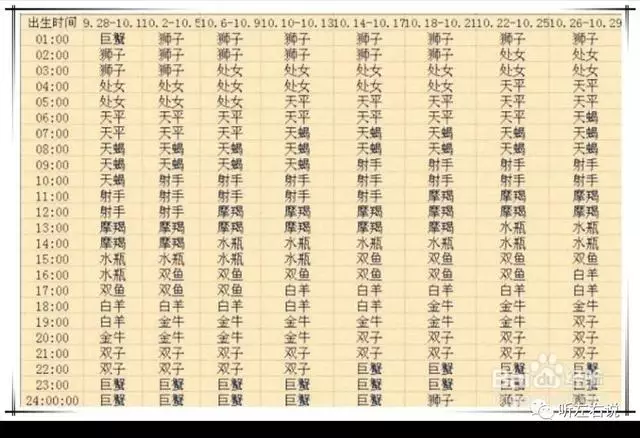 出生时间 9.28-10.1 10.2-10.5 10.6-10.9 10.10-10.13 10.14-10.17 10.18-10.21 10.22-10.25 10.26-10.29
01:00 巨蟹 狮子 狮子 狮子 狮子 狮子 狮子 狮子
02:00 狮子 狮子 狮子 狮子 狮子 狮子 处女 处女
03:00 狮子 狮子 处女 处女 处女 处女 处女 处女
04:00 处女 处女 处女 处女 处女 处女 天平 天平
05:00 处女 处女 处女 天平 天平 天平 天平 天平
06:00 天平 天平 天平 天平 天平 天平 天平 天蝎
07:00 天平 天平 天平 天蝎 天蝎 天蝎 天蝎 天蝎
08:00 天蝎 天蝎 天蝎 天蝎 天蝎 天蝎 天蝎 天蝎
09:00 天蝎 天蝎 天蝎 天蝎 射手 射手 射手 射手
10:00 天蝎 射手 射手 射手 射手 射手 射手 射手
11:00 射手 射手 射手 射手 射手 摩羯 摩羯 摩羯
12:00 射手 射手 摩羯 摩羯 摩羯 摩羯 摩羯 摩羯
13:00 摩羯 摩羯 摩羯 摩羯 摩羯 摩羯 水瓶 水瓶
14:00 摩羯 摩羯 水瓶 水瓶 水瓶 水瓶 水瓶 水瓶
15:00 水瓶 水瓶 水瓶 水瓶 双鱼 双鱼 双鱼 双鱼
16:00 水瓶 双鱼 双鱼 双鱼 双鱼 双鱼 双鱼 白羊
17:00 双鱼 双鱼 双鱼 白羊 白羊 白羊 白羊 白羊
18:00 白羊 白羊 白羊 白羊 白羊 金牛 金牛 金牛
19:00 白羊 金牛 金牛 金牛 金牛 金牛 金牛 双子
20:00 金牛 金牛 金牛 金牛 双子 双子 双子 双子
21:00 双子 双子 双子 双子 双子 双子 双子
22:00 双子 双子 双子 双子 巨蟹 巨蟹 巨蟹 巨蟹
23:00 巨蟹 巨蟹 巨蟹 巨蟹 巨蟹 巨蟹 巨蟹 巨蟹
24:00:00 巨蟹 巨蟹 巨蟹 巨蟹 巨蟹 狮子 狮子 狮子
Bai 百科
听左右说